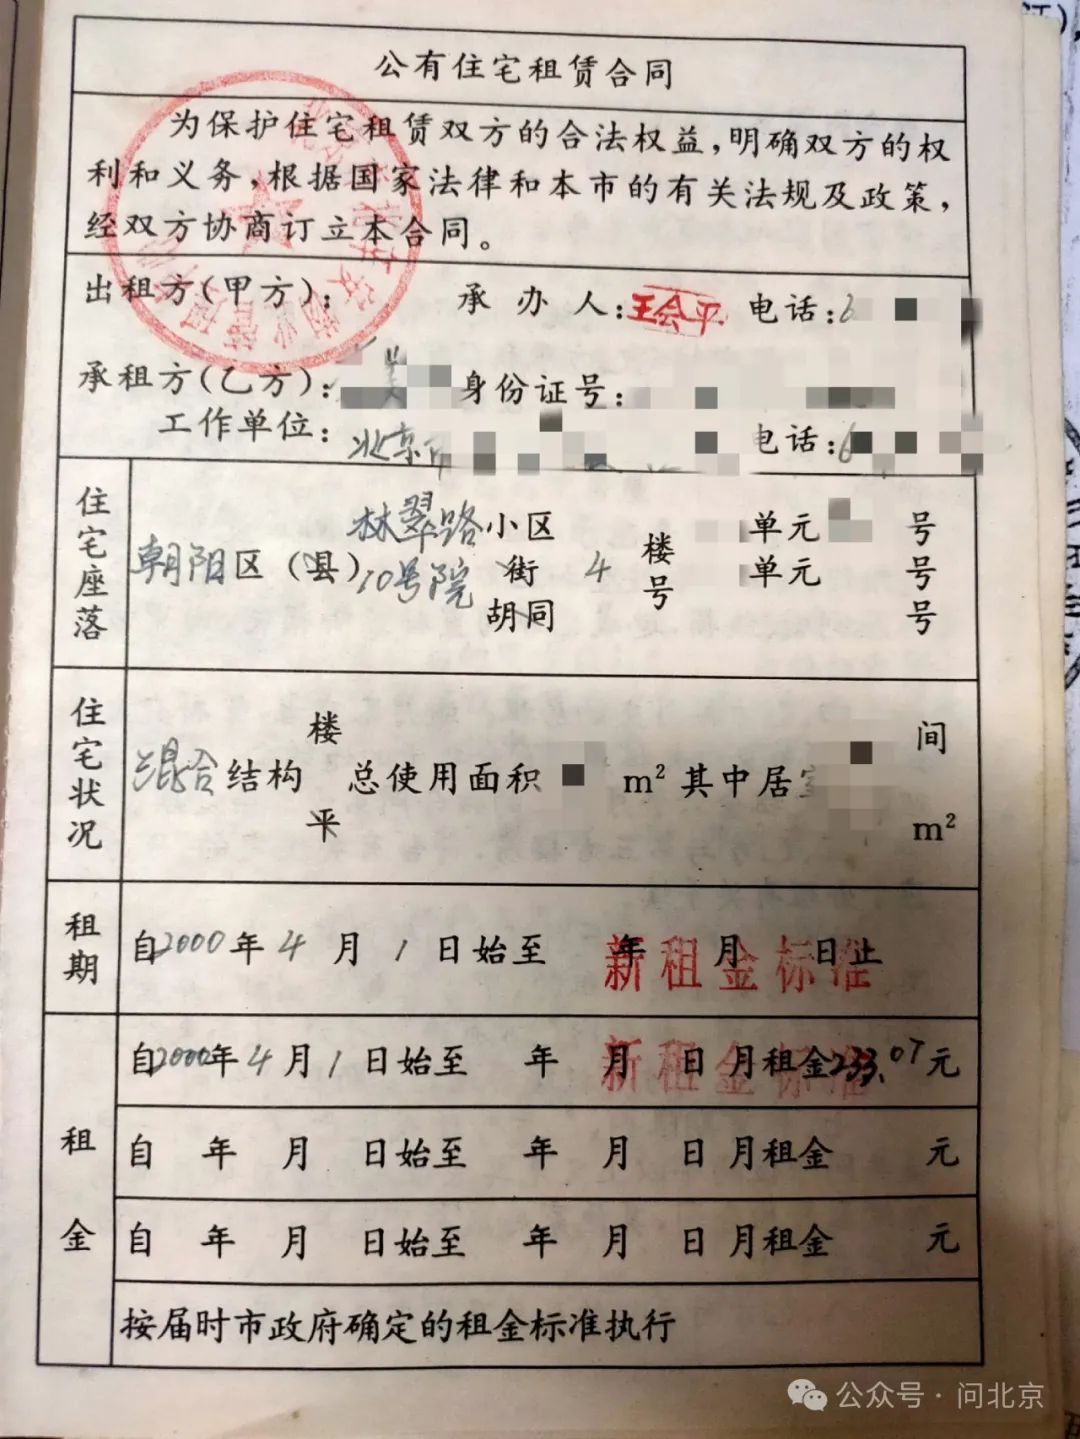 公有住宅租赁合同
为保护住宅租赁双方的合法权益，明确双方的权
利和义务，根据国家法律和本市的有关法规及政策，
经双方协商订立本合同。
出租方(甲方)： 承办人：王会平 电话：6
承租方(乙方)： 身份证号：
工作单位：北京市 电话：6
住宅座落
朝阳区（县）林翠路10号院 小区 街 胡同 4 楼号 单元 单元 号 号 号
住宅状况
混合结构 楼 平 总使用面积 m² 其中居室 间 m²
租期
自2000年4月1日始至 年 月 日止
新租金标准
租金
自2000年4月1日始至 年 月 日 月租金233.07元
新租金标准
自 年 月 日始至 年 月 日 月租金 元
自 年 月 日始至 年 月 日 月租金 元
按届时市政府确定的租金标准执行
公众号·问北京